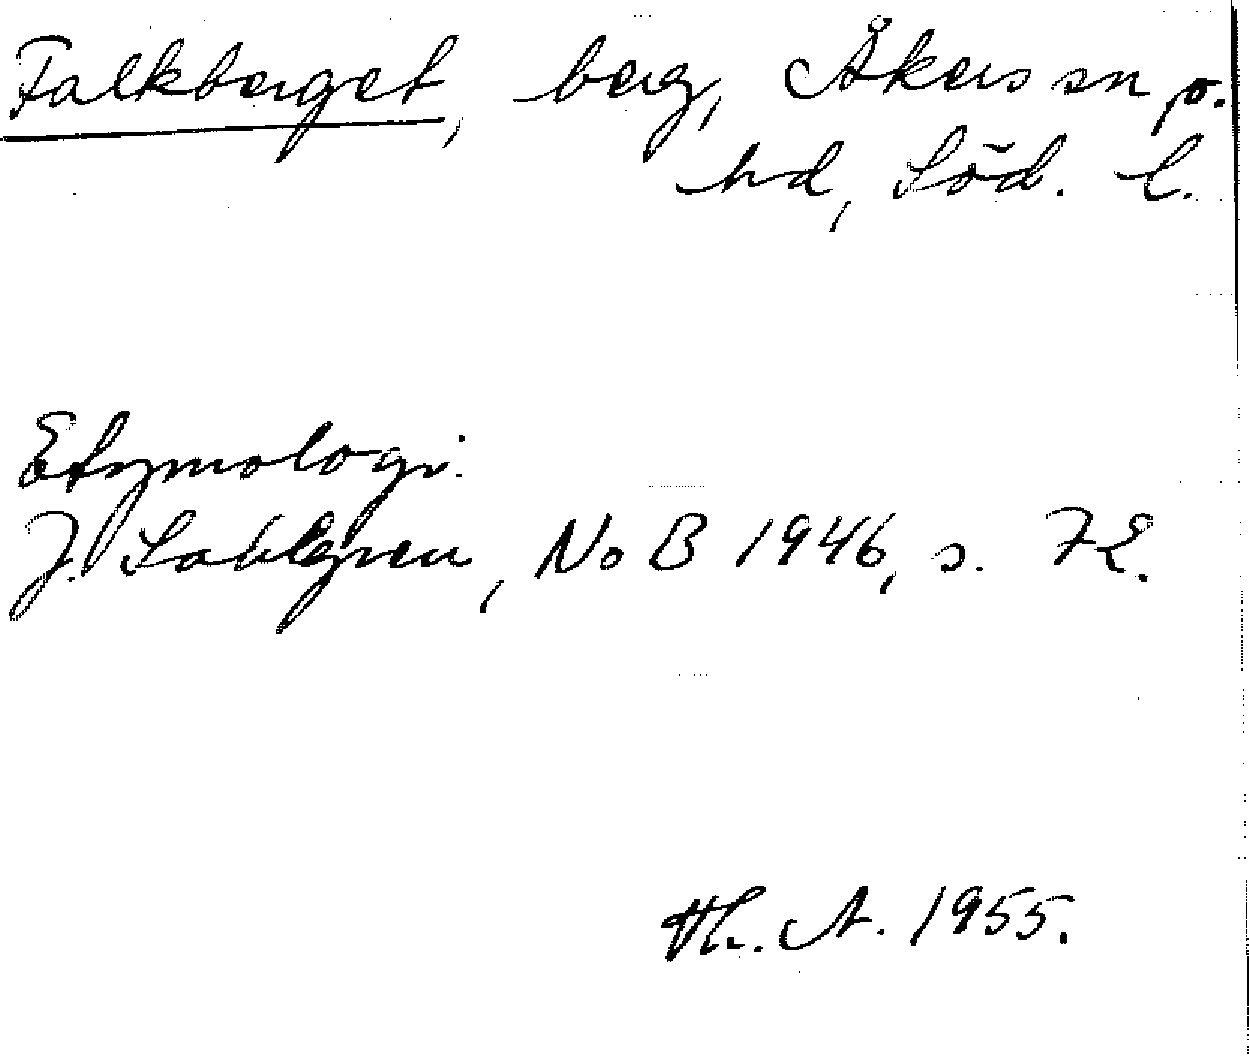 Falkberget, berg, Åkers sn o.
hd, Söd. l.
Etymologi:
J. Sahlgren, NoB 1946, s. 72.
Th. A. 1955.